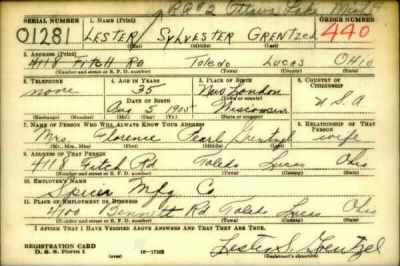 R R #2 Ottawa Lake Mich
SERIAL NUMBER 1. NAME (Print) ORDER NUMBER
01281 LESTER SYLVESTER GRENTZEL 440
(First) (Middle) (Last)
2. ADDRESS (Print)
4118 FITCH RD TOLEDO LUCAS OHIO
(Number and street or R. F. D. number) (Town) (County) (State)
3. TELEPHONE 4. AGE IN YEARS 5. PLACE OF BIRTH 6. COUNTRY OF CITIZENSHIP
none 35 New London
DATE OF BIRTH (Town or county)
Aug 5 1905 Wisconsin U S A
(Exchange) (No.) (Mo.) (Day) (Yr.) (State or country)
7. NAME OF PERSON WHO WILL ALWAYS KNOW YOUR ADDRESS 8. RELATIONSHIP OF THAT PERSON
Mrs Florence Pearl Grentzel wife
(Mr., Mrs., Miss) (First) (Middle) (Last)
9. ADDRESS OF THAT PERSON
4118 Fitch Rd Toledo Lucas Ohio
(Number and street or R. F. D. number) (Town) (County) (State)
10. EMPLOYER'S NAME
Spicer Mfg Co
11. PLACE OF EMPLOYMENT OR BUSINESS
4100 Bennett Rd Toledo Lucas Ohio
(Number and street or R. F. D. number) (Town) (County) (State)
I AFFIRM THAT I HAVE VERIFIED ABOVE ANSWERS AND THAT THEY ARE TRUE.
REGISTRATION CARD
D. S. S. Form 1 (over) 16—17105 Lester S. Grentzel
(Registrant's signature)